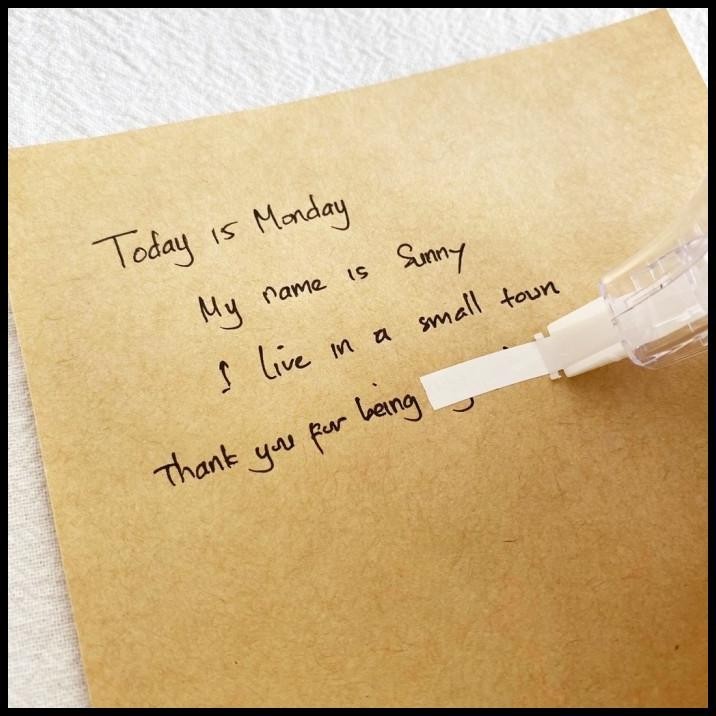 Today is Monday
My name is Sunny
I live in a small town
Thank you for being